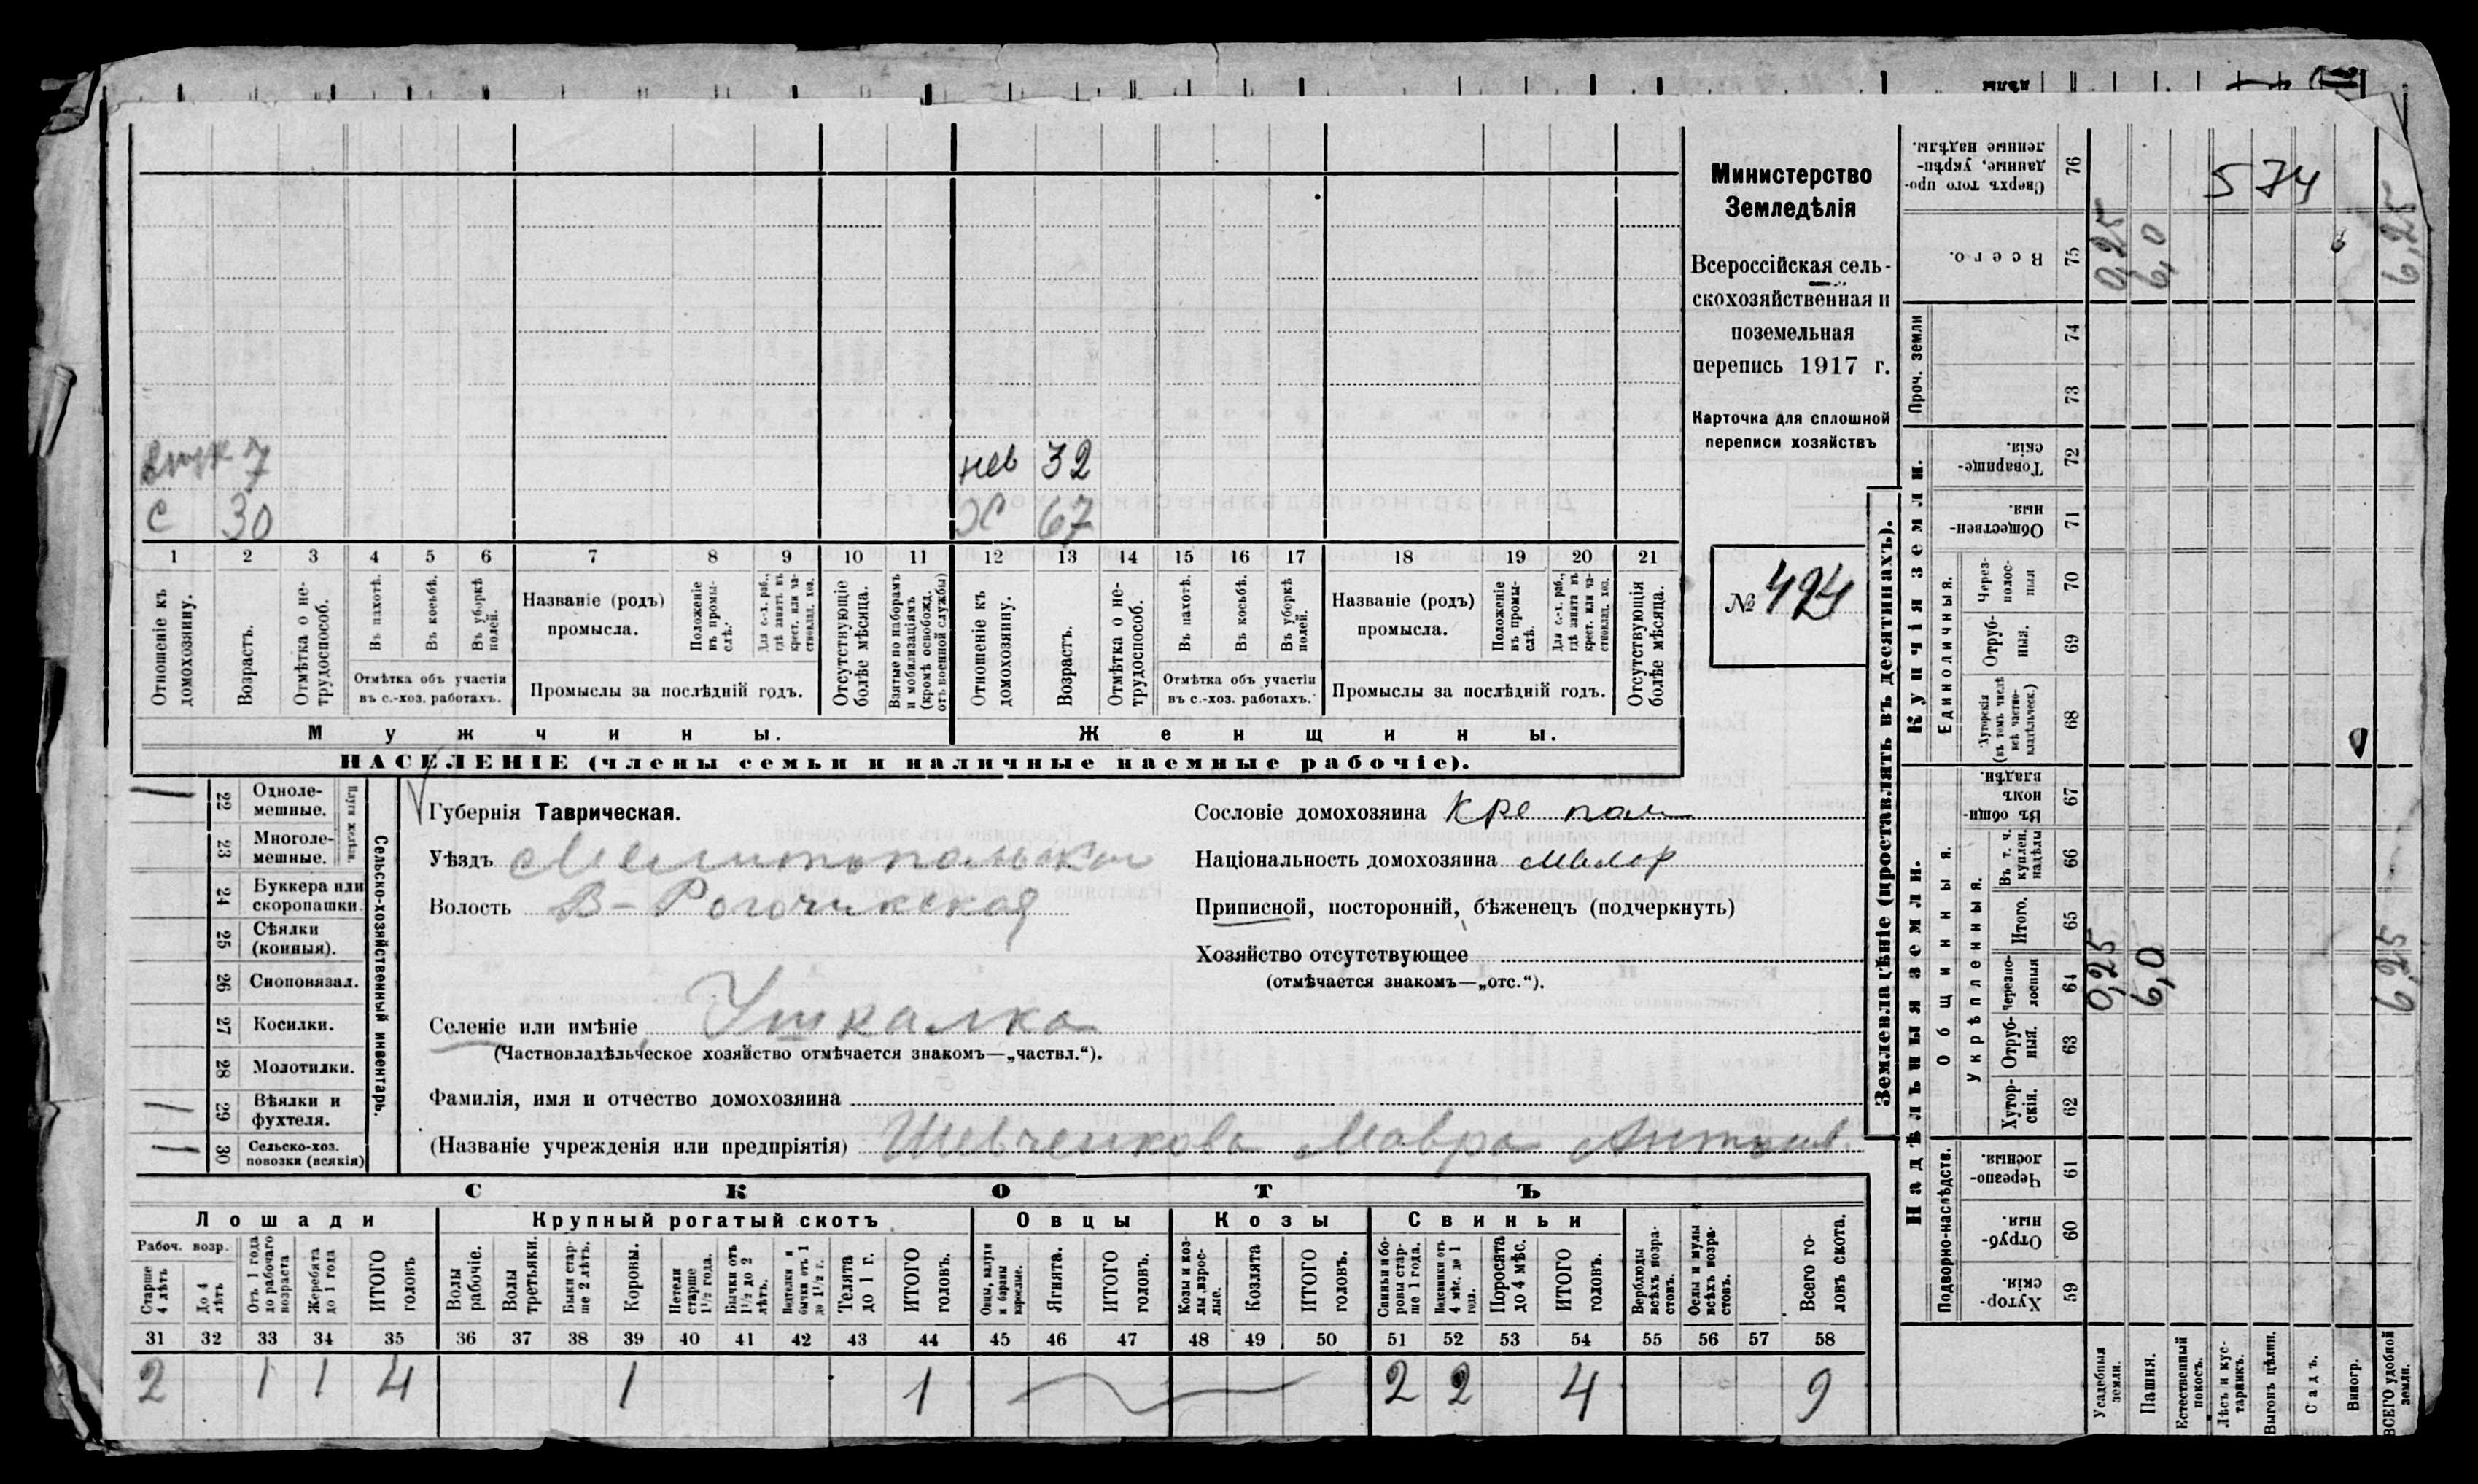 574
внук 7
нев 32
с 30
ж 67
1 2 3 4 5 6 7 8 9 10 11 12 13 14 15 16 17 18 19 20 21
Отношеніе къ домохозяину.
Возрастъ.
Отмѣтка о не-
трудоспособ.
Въ пахотѣ.
Въ косьбѣ.
Въ уборкѣ полей.
Отмѣтка объ участіи
въ с.-хоз. работахъ.
Названіе (родъ)
промысла.
Положеніе въ промы-
слѣ.
Для с.-х. раб., гдѣ занятъ въ крест. или ча-
стновлад. хоз.
Промыслы за послѣдній годъ.
Отсутствующіе болѣе мѣсяца.
Взятые по наборамъ и мобилизаціямъ (кромѣ освобожд. отъ военной службы)
Отношеніе къ домохозяину.
Возрастъ.
Отмѣтка о не-
трудоспособ.
Въ пахотѣ.
Въ косьбѣ.
Въ уборкѣ полей.
Отмѣтка объ участіи
въ с.-хоз. работахъ.
Названіе (родъ)
промысла.
Положеніе въ промы-
слѣ.
Для с.-х. раб., гдѣ занята въ крест. или ча-
стновлад. хоз.
Промыслы за послѣдній годъ.
Отсутствующія болѣе мѣсяца.
Мужчины.
Женщины.
НАСЕЛЕНІЕ (члены семьи и наличные наемные рабочіе).
Министерство
Земледѣлія
Всероссійская сель-
скохозяйственная и
поземельная
перепись 1917 г.
Карточка для сплошной
переписи хозяйствъ
№ 424
22 Одноле-
мешные.
23 Многоле-
мешные.
Плуги желѣзн.
24 Буккера или
скоропашки.
25 Сѣялки
(конныя).
26 Сноповязал.
27 Косилки.
28 Молотилки.
29 Вѣялки и
фухтеля.
30 Сельско-хоз.
повозки (всякія)
Сельско-хозяйственный инвентарь.
Губернія Таврическая.
Уѣздъ Мелитопольский
Волость В-Рогочикская
Селеніе или имѣніе Ушкалка
(Частновладѣльческое хозяйство отмѣчается знакомъ—„частвл.“).
Фамилія, имя и отчество домохозяина
(Названіе учрежденія или предпріятія) Шевченкова Мавра Антонов.
Сословіе домохозяина Кре
Національность домохозяина малор
Приписной, посторонній, бѣженецъ (подчеркнуть)
Хозяйство отсутствующее
(отмѣчается знакомъ—„отс.“).
СКОТЪ
Лошади
Крупный рогатый скотъ
Овцы
Козы
Свиньи
Рабоч. возр.
Старше 4 лѣтъ
До 4 лѣтъ
Отъ 1 года до рабочаго возраста
Жеребята до 1 года
ИТОГО головъ
Волы рабочіе.
Волы третьяки.
Быки стар-
ше 2 лѣтъ.
Коровы.
Нетели старше 1½ года.
Бычки отъ 1½ до 2 лѣтъ.
Подтелки и бычки отъ 1 до 1½ г.
Телята до 1 г.
ИТОГО головъ.
Овцы, валухи и бараны взрослые.
Ягнята.
ИТОГО головъ.
Козы и коз-
лы взрос-
лые.
Козлята
ИТОГО головъ.
Свиньи и бо-
ровы стар-
ше 1 года.
Подсвинки отъ 4 мѣс. до 1 года.
Поросята до 4 мѣс.
ИТОГО головъ.
Верблюды всѣхъ возра-
стовъ.
Ослы и мулы всѣхъ возра-
стовъ.
Всего го-
ловъ скота.
31 32 33 34 35 36 37 38 39 40 41 42 43 44 45 46 47 48 49 50 51 52 53 54 55 56 57 58
2 1 1 4 1 1 2 2 4 9
Землевладѣніе (проставлять въ десятинахъ).
Купчія земли.
Надѣльныя земли.
Сверхъ того про-
данные, укрѣп-
ленные надѣлы.
76
Всего.
75
0,25
6,0
6,25
Проч. земли
74
73
Товарище-
скія.
72
Обществен-
ныя.
71
Единоличныя.
Через-
полос-
ныя
70
Отруб-
ныя.
69
Хуторскія (въ томъ числѣ всѣ частно-
владѣльческ.)
68
Общинныя.
Въ общи-
номъ
владѣн.
67
Укрѣпленныя.
Въ т. ч. куплен. надѣлы
66
Итого.
65
Черезпо-
лосныя
64
0,25
6,0
6,25
Отруб-
ныя.
63
Хутор-
скія.
62
Подворно-наслѣдств.
Черезпо-
лосныя.
61
Отруб-
ныя.
60
Хутор-
скія.
59
Усадебныя земли.
Пашня.
Естественный покосъ.
Лѣсъ и кус-
тарникъ.
Выгонъ цѣлин.
Садъ.
Виногр.
ВСЕГО удобной земли.